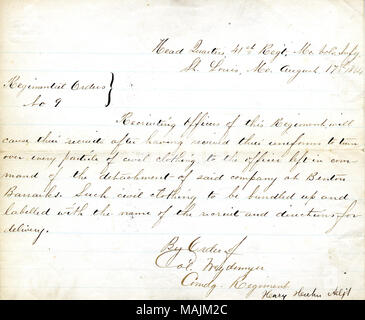 Head Quarters, 41st Regt. Mo. Vols. Infy.
St. Louis, Mo. August 17th 1864
Regimental Orders
No 9
Recruiting Officers of this Regiment, will
cause their recruits after having received their uniforms to turn
over every particle of civil clothing to the officer left in com-
mand of the detachment of said company at Benton
Barracks. Such civil clothing to be bundled up and
labelled with the name of the recruit and directions for
delivery.
By Order of
Col. Weydemeyer
Comdg. Regiment
Henry Adjt
alamy
Image ID: MAJM2C
www.alamy.com